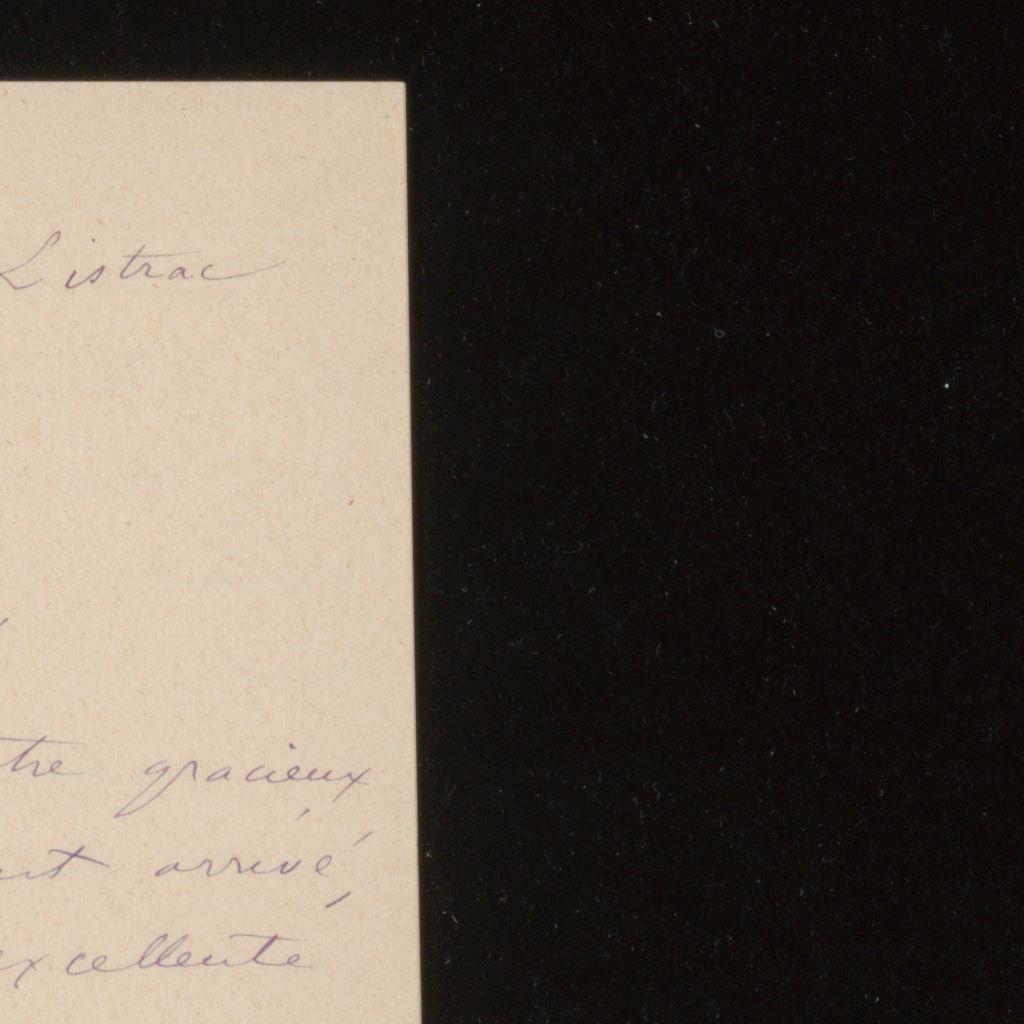 Listrac
tre gracieux
nt arrivé,
excellente